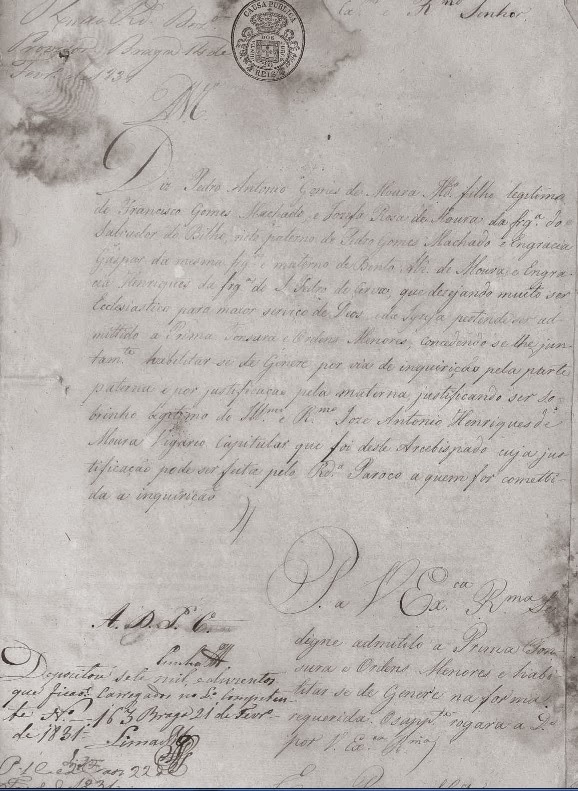 Ex.mo e R.mo Senhor
CAUSA PUBLICA
REIS
Braga 14 de
Diz Pedro Antonio Gomes de Moura filho legitimo
de Francisco Gomes Machado, e Jozefa Roza de Moura da frg.ª do
Salvador de neto paterno de Pedro Gomes Machado e Engracia
Gaspar da mesma frg.ª e materno de Bento de Moura e Engra-
cia Henriques da frg.ª de S. Pedro de que desejando muito ser
Ecclesiastico para maior serviço de Deos, e da Igreja pertende ser ad-
mittido a Prima Tonsura e Ordens Menores, concedendo se lhe jun-
tam.te habilitar se de Genere por via de inquirição pela parte
paterna e por justificação pela materna, justificando ser so-
brinho legitimo do Ill.mo e R.mo Joze Antonio Henriques de
Moura Vigario Capitular que foi deste Arcebispado cuja jus-
tificação pode ser feita pelo Rd.º Paroco a quem for cometti-
da a inquirição
P. a V Ex.ca R.ma Se
digne admitilo a Prima Ton-
sura e Ordens Menores e habi-
litar se de Genere na forma
requerida. rogara a D.s
por V. Ex.ca R.ma
A. D. P. C.
Depozitou sete mil, e duzentos
que ficão Carregados no L.º Competen-
te N.º 163 Braga 21 de Fevr.º
de 1831